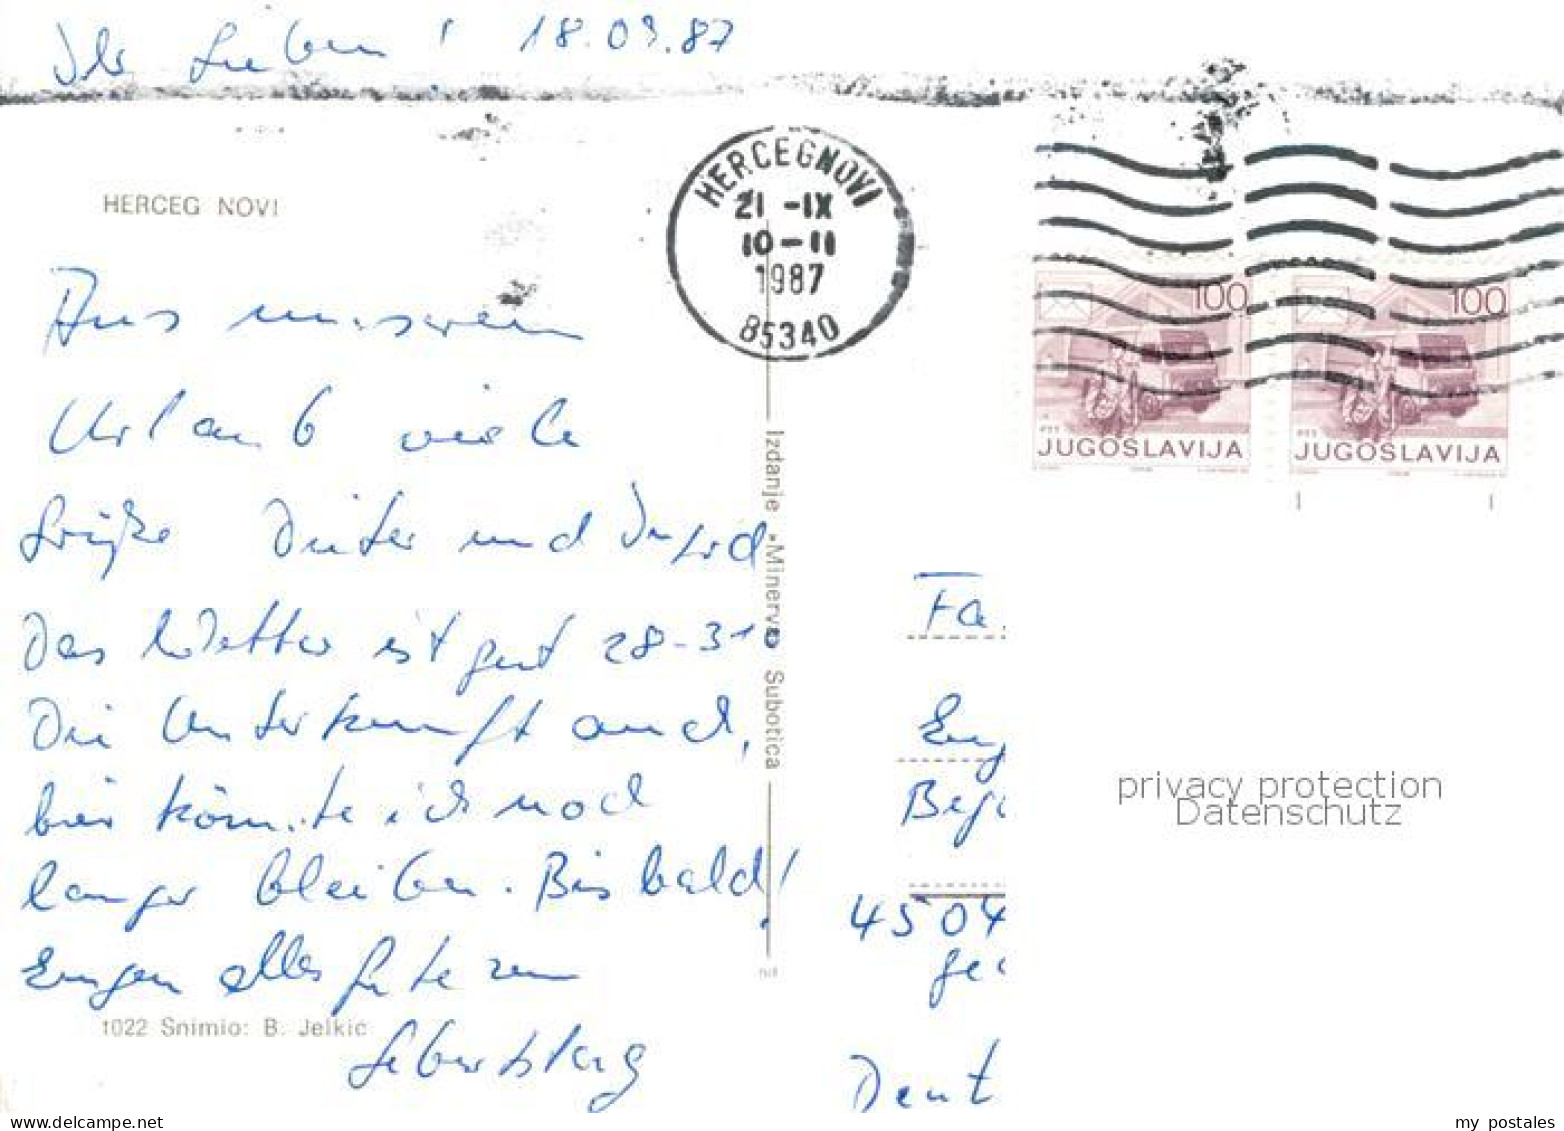 Ihr Lieben! 18.09.87
HERCEG NOVI
HERCEGNOVI
21 -IX
10-11
1987
85340
100
100
PTT
JUGOSLAVIJA
PTT
JUGOSLAVIJA
Aus unserem
Urlaub viele
Grüße Dieter und Ingrid
Das Wetter ist gut 28-31°
Die Unterkunft auch,
hier könnte ich noch
langer bleiben. Bis bald!
Eugen alles gute zum
Geburtstag
Izdanje »Minerva« Subotica
1022 Snimio: B. Jelkić
Fa.
Eug
4504
Deut
privacy protection
Datenschutz
www.delcampe.net
my_postales